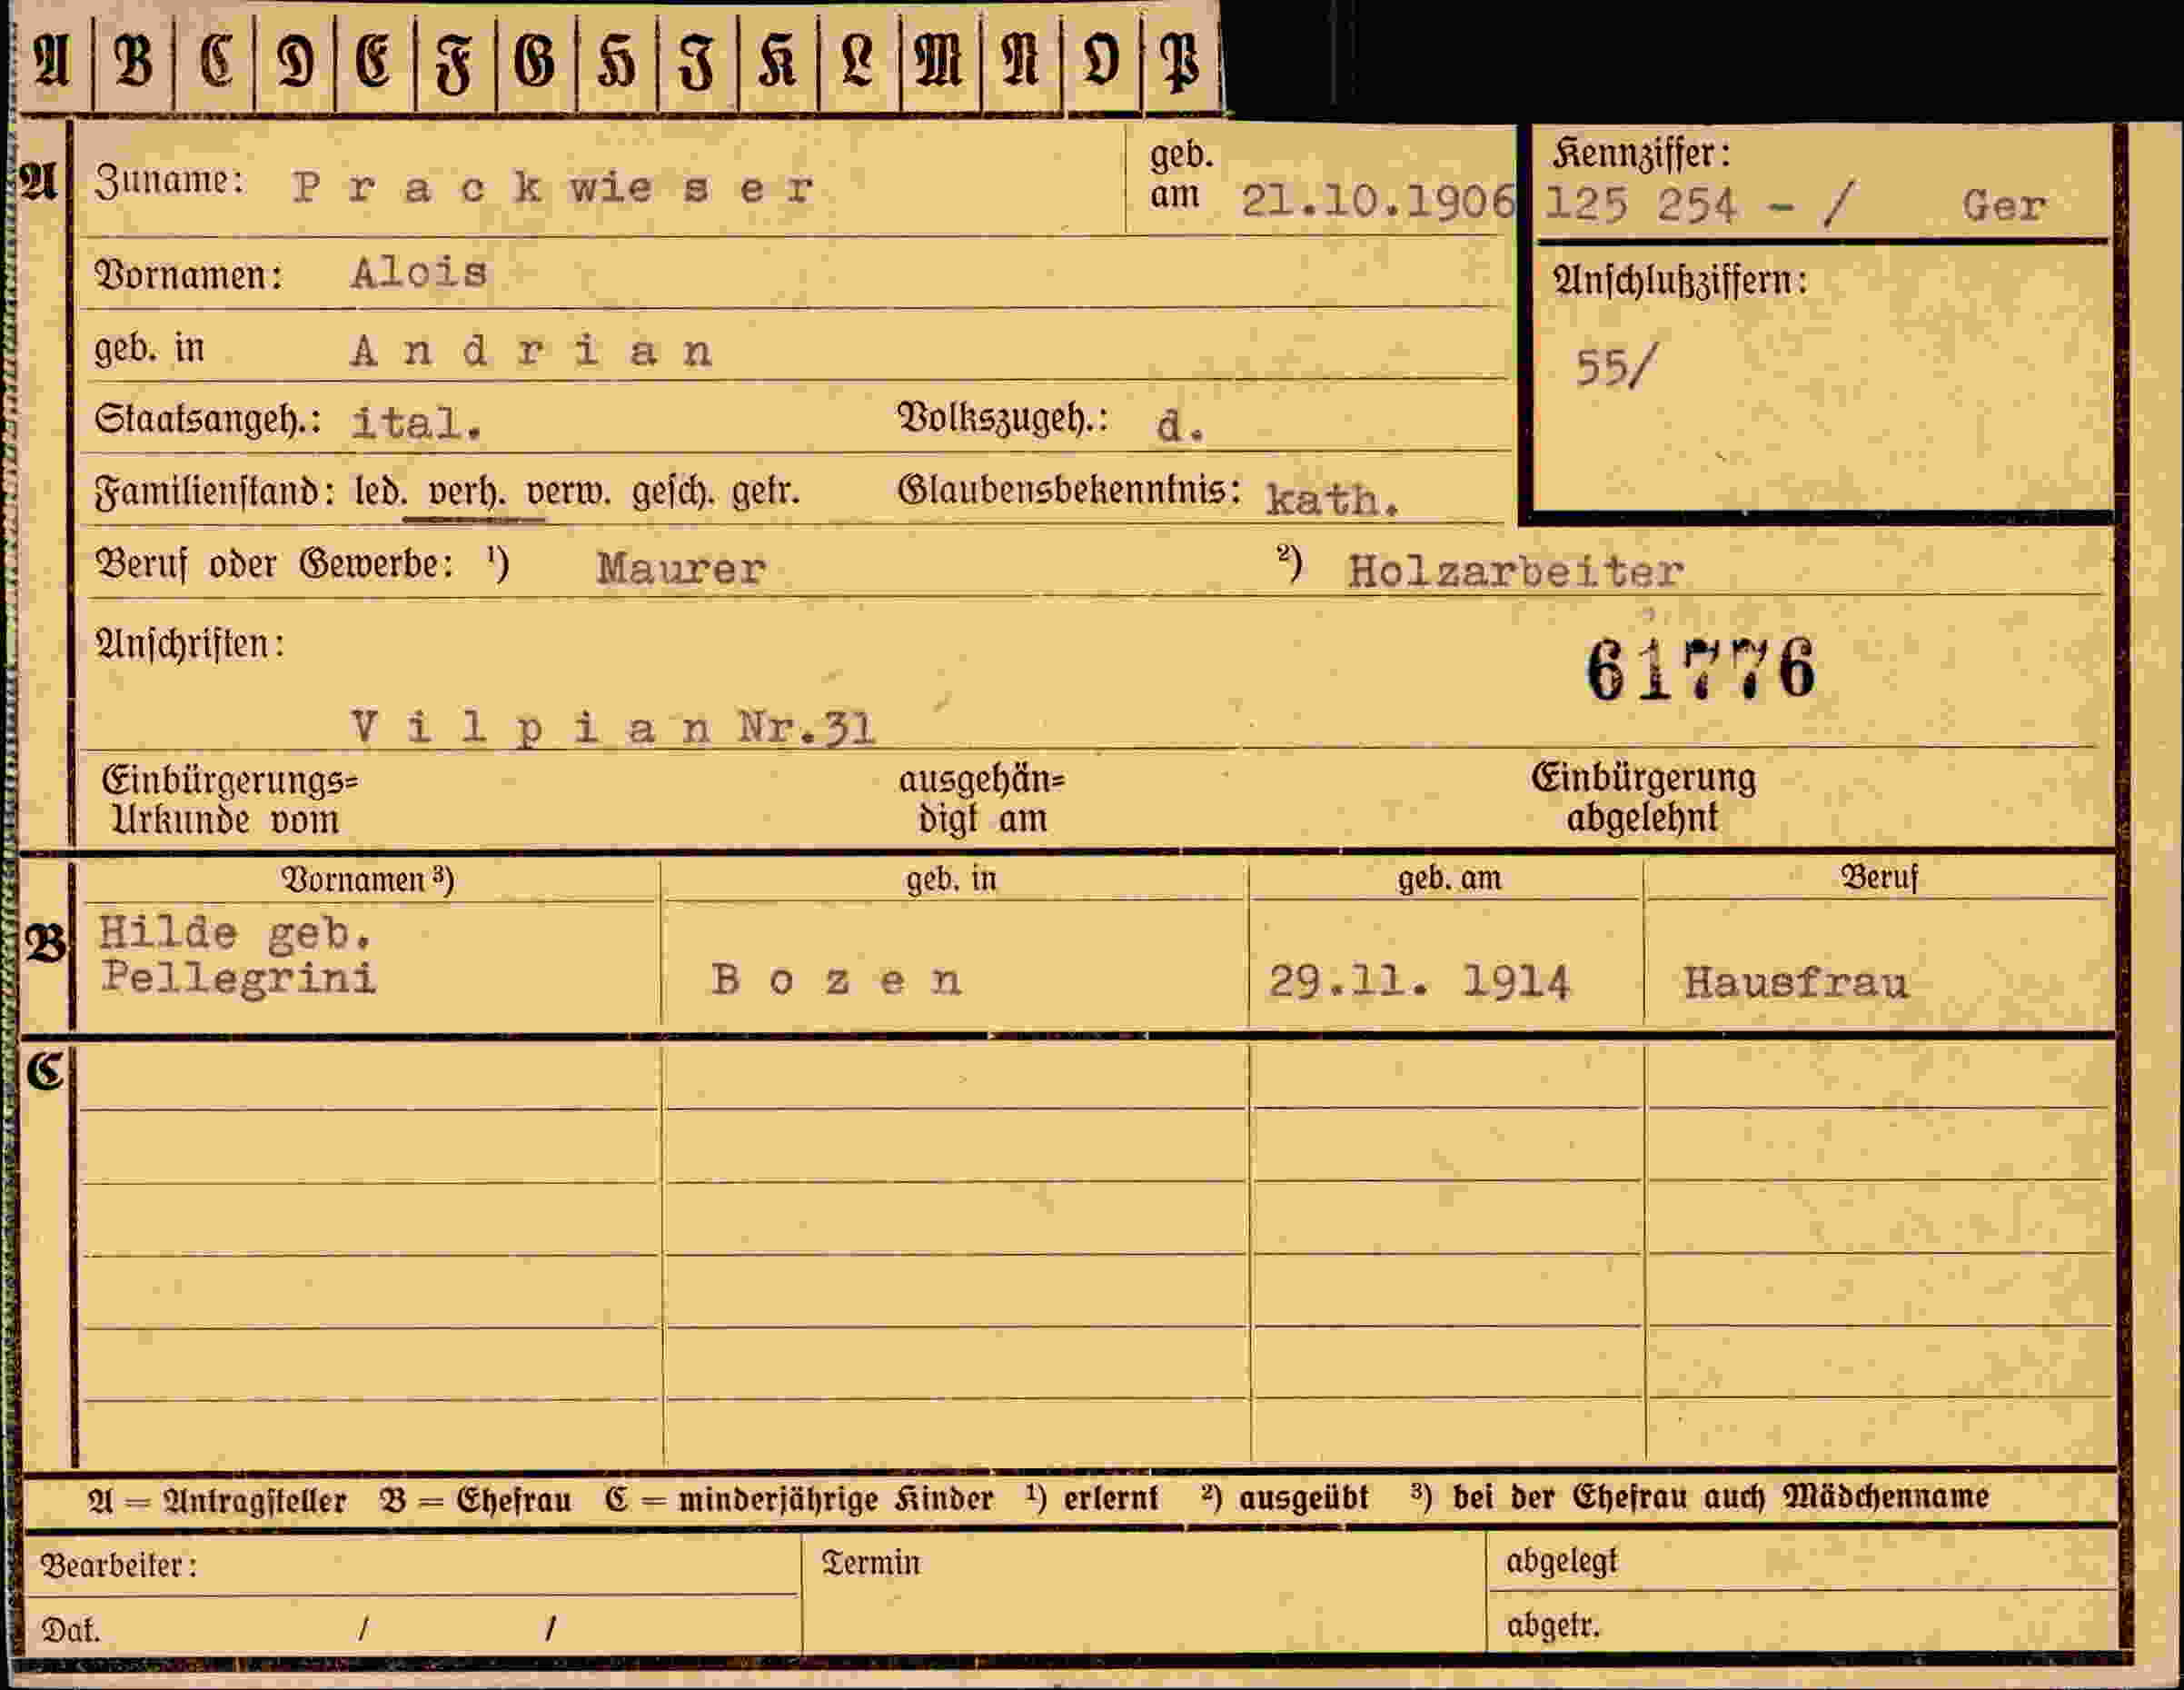 A B C D E F G H I K L M N O P
A Zuname: Prackwieser geb. am 21.10.1906
Kennziffer:
125 254 - / Ger
Vornamen: Alois
Anschlußziffern:
geb. in Andrian
55/
Staatsangeh.: ital. Volkszugeh.: d.
Familienstand: led. verh. verw. gesch. getr. Glaubensbekenntnis: kath.
Beruf oder Gewerbe: ¹) Maurer ²) Holzarbeiter
Anschriften:
61776
Vilpian Nr.31
Einbürgerungs= ausgehän= Einbürgerung
Urkunde vom digt am abgelehnt
Vornamen ³) geb. in geb. am Beruf
B Hilde geb.
Pellegrini Bozen 29.11. 1914 Hausfrau
C
A = Antragsteller B = Ehefrau C = minderjährige Kinder ¹) erlernt ²) ausgeübt ³) bei der Ehefrau auch Mädchenname
Bearbeiter: Termin abgelegt
Dat. / / abgetr.